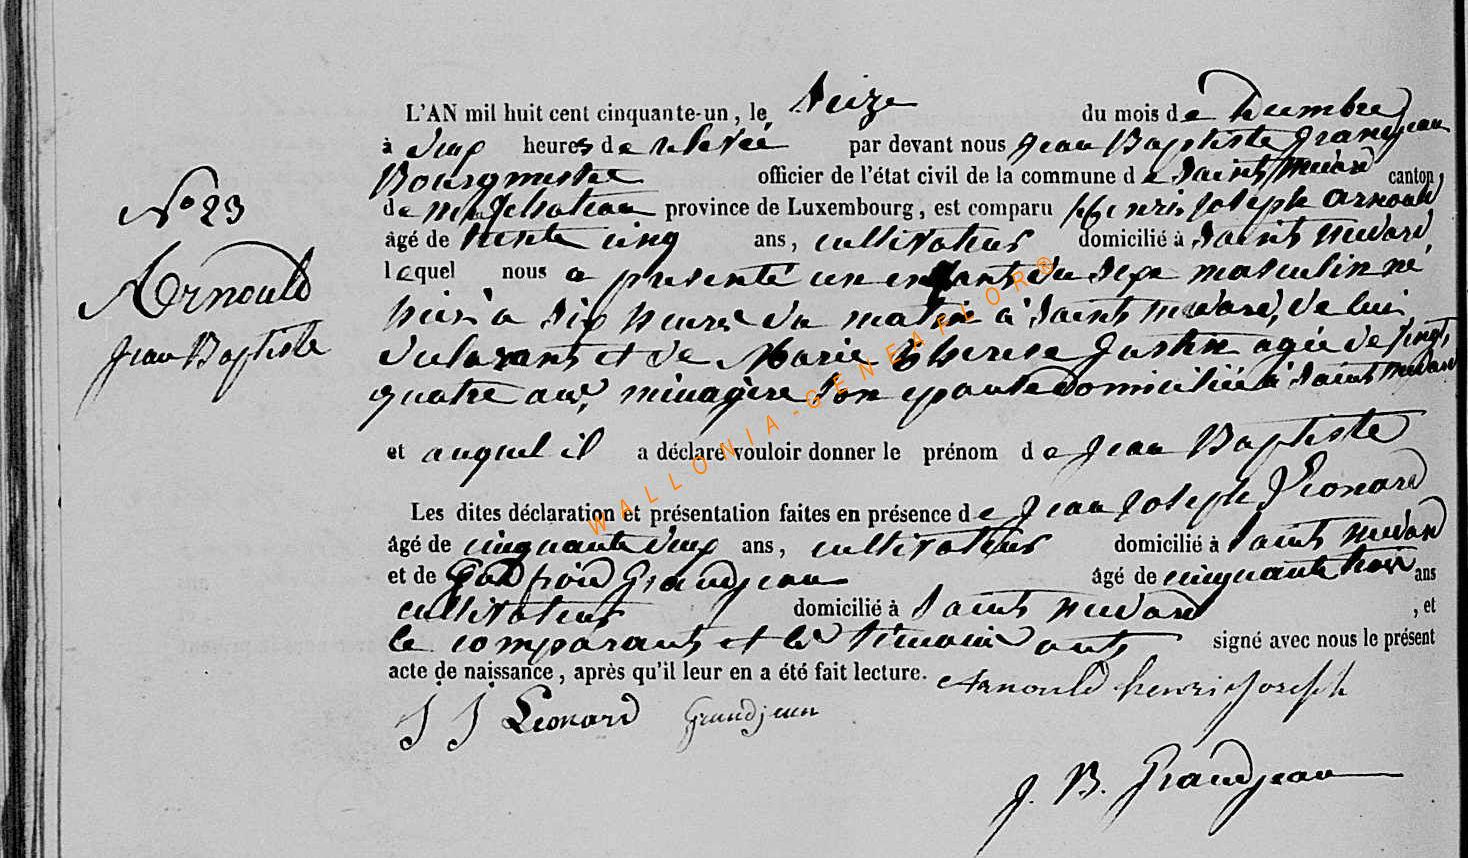 L'AN mil huit cent cinquante-un, le seize du mois de decembre
à deux heures de relevée par devant nous Jean Baptiste Grandjean
Bourgmestre officier de l'état civil de la commune de Saint Médard canton
de neufchateau province de Luxembourg, est comparu Henri Joseph Arnould
âgé de trente cinq ans, cultivateur domicilié à Saint Médard,
lequel nous a présenté un enfant du sexe masculin né
hier à dix heures du matin à Saint Médard, de lui
declarant et de Marie Therese Justin agée de vingt
quatre ans, ménagère son epouse domiciliée à Saint Médard
et auquel il a déclaré vouloir donner le prénom de Jean Baptiste
Les dites déclaration et présentation faites en présence de Jean Joseph Léonard
âgé de cinquante deux ans, cultivateur domicilié à Saint Médard
et de Godfroid Grandjean âgé de cinquante trois ans
cultivateur domicilié à Saint Médard, et
le comparant et les témoins ont signé avec nous le présent
acte de naissance, après qu'il leur en a été fait lecture.
Arnould henri joseph
J J Léonard Grandjean
J. B. Grandjean
N° 23
Arnould
Jean Baptiste
WALLONIA-GENEAFLOR®